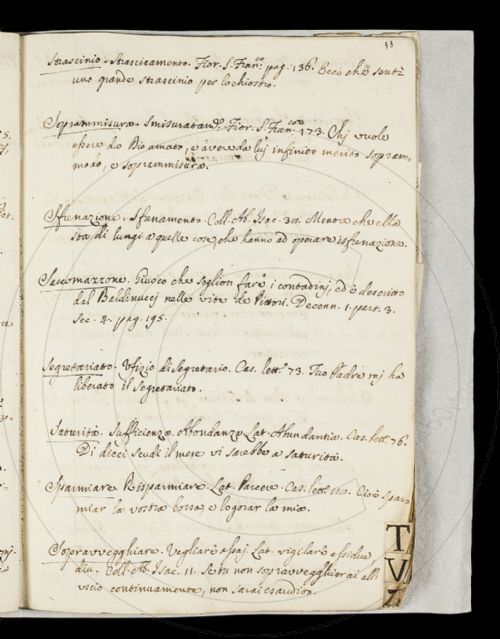 93
Strascinio. Strascicamento. Fior. S. Fran.co pag. 136. Ecco che sentì
uno grande strascinio per lo chiostro.
Soprammisura. Smisuratam.e Fior. S. Fran.co 173. Chi vuole
essere da Dio amato, e avere da lui infinito merito sopram
modo, e soprammisura.
Sfrenazione. Sfrenamento. Coll. Ab. Isac. 39. Mentre che ella
sta di lungi a quelle cose, che hanno ad operare isfrenazione.
Saccomazzone. Giuoco che soglion fare i contadini, ed è descritto
dal Baldinucci nelle vite de Pittori. Decenn. 1. part. 3.
Sec. 4. pag. 195.
Segretariato. Ufizio di Segretario. Cas. lett. 73. Tuo Padre mi ha
liberato il Segretariato.
Saturità. Sufficienza. Abondanza Lat. Abundantia. Cas. lett. 76.
Di dieci scudi il mese vi sarebbe a saturità.
Sparmiare Risparmiare. Lat. Parcere. Cas. lett. Cioè spar
miar la vostra borsa, e logorar la mia.
Sopravvegghiare. Vegliare assai. Lat. vigilare
diu. Coll. Ab. Isac. 11. Se tu non sopravvegghierai all'
uscio continuamente, non sarai esaudito.
T
V
Z